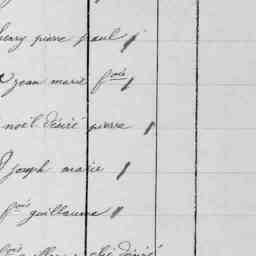 henry pierre paul
jean marie fois
noël désiré pierre
joseph marie
fois guillaume